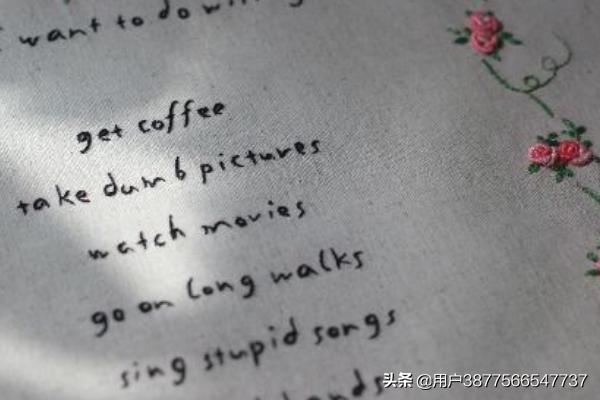 want to do
get coffee
take dumb pictures
watch movies
go on long walks
sing stupid songs
hands
头条 @用户3877566547737